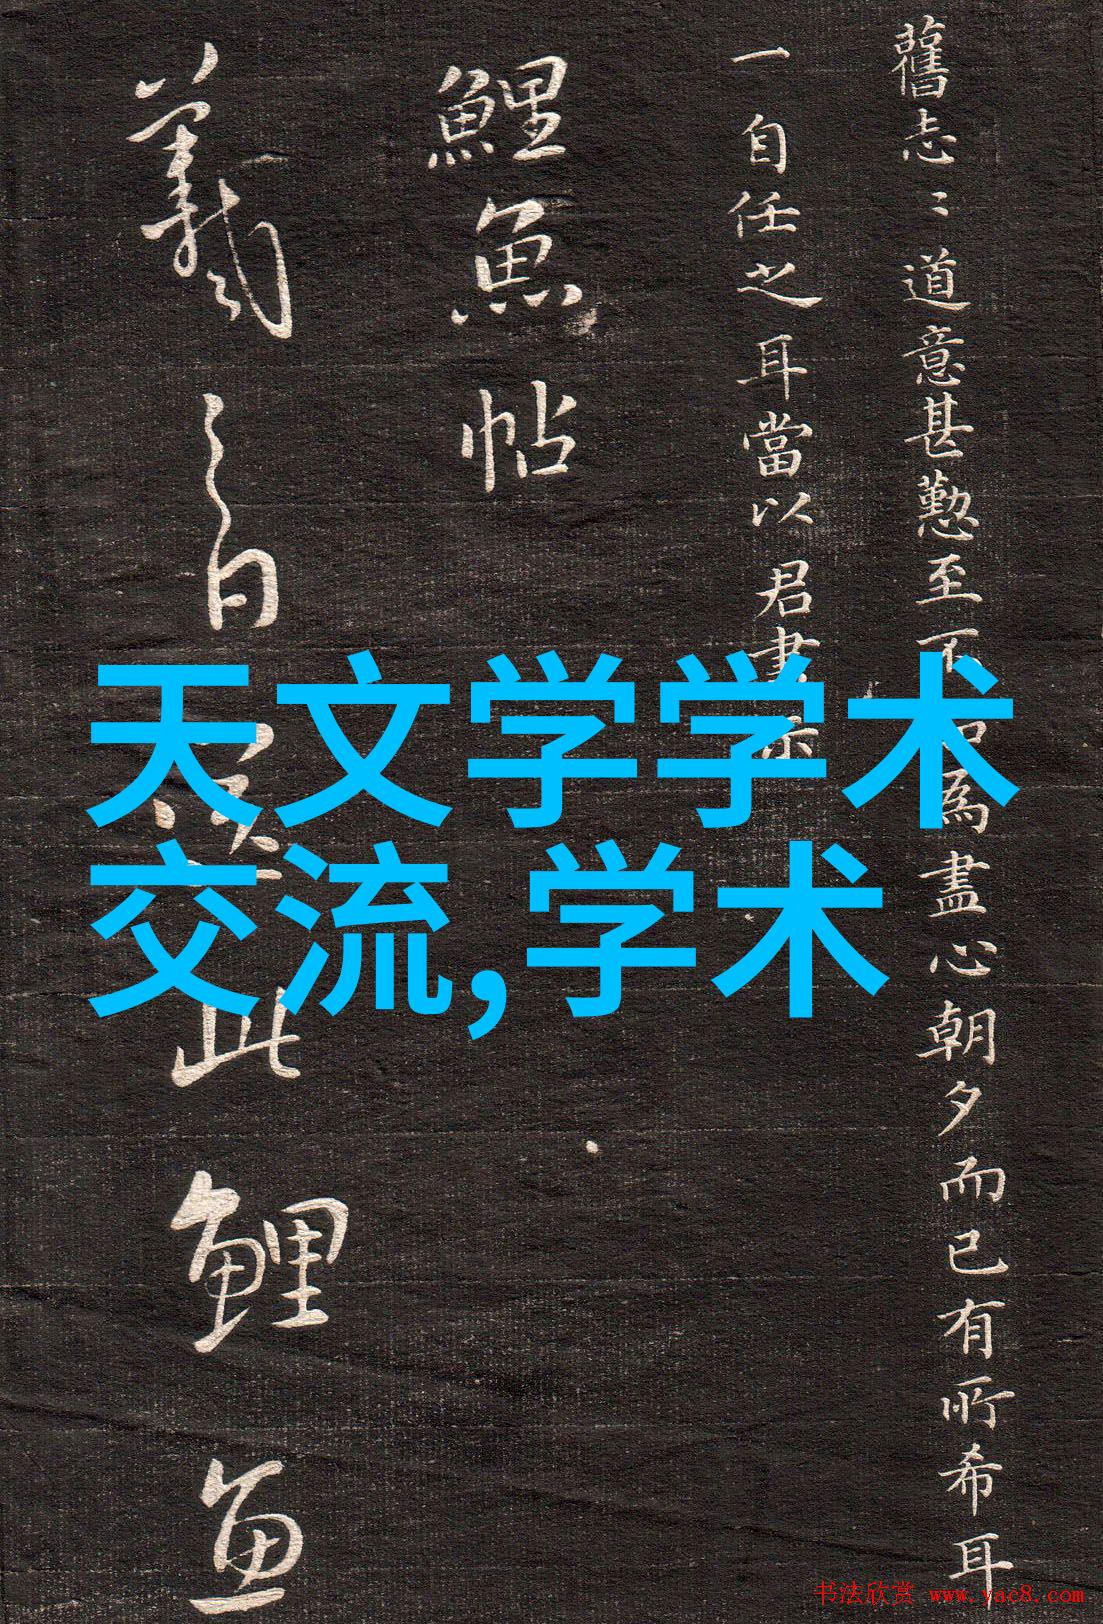 舊忐〻道意甚懃至不為盡心朝夕而已有所希耳
一自任之耳當以君書
鯉魚帖
羲之白此鯉魚
天文学学术
交流,学术
书法欣赏 www.yac8.com